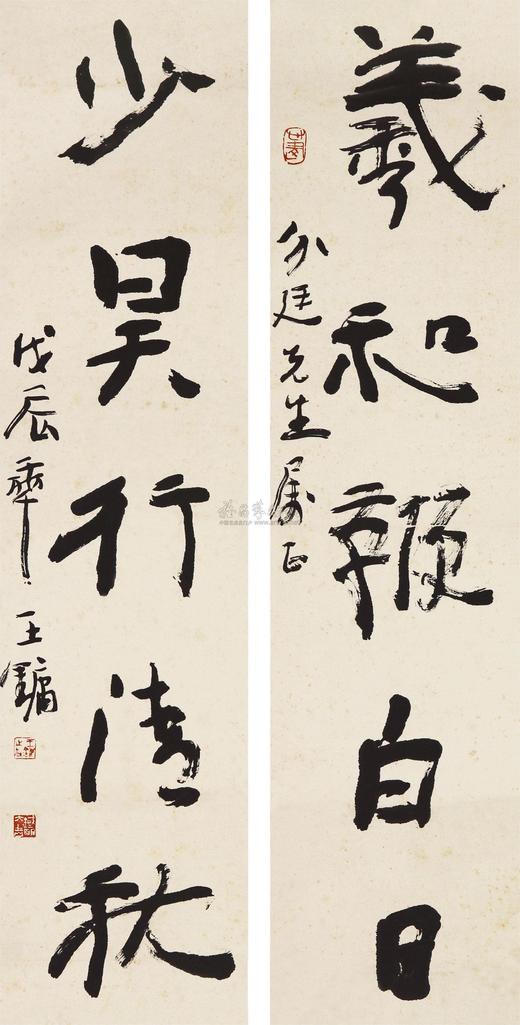 羲和鞭白日
外廷先生属正
少昊行清秋
戊辰年 王镛